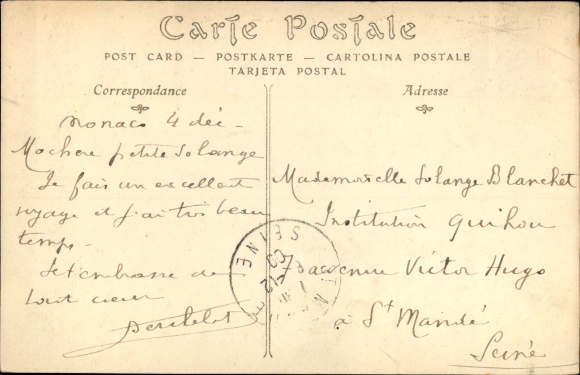 Carte Postale
POST CARD — POSTKARTE — CARTOLINA POSTALE
TARJETA POSTAL
Correspondance
Monaco 4 déc -
Ma chère petite Solange
Je fais un excellent
voyage et j'ai très beau
temps -
Je t'embrasse de
tout cœur
Adresse
Mademoiselle Solange Blanchet
Institution Quihou
avenue Victor Hugo
à St Mandé
Seine
SEINE